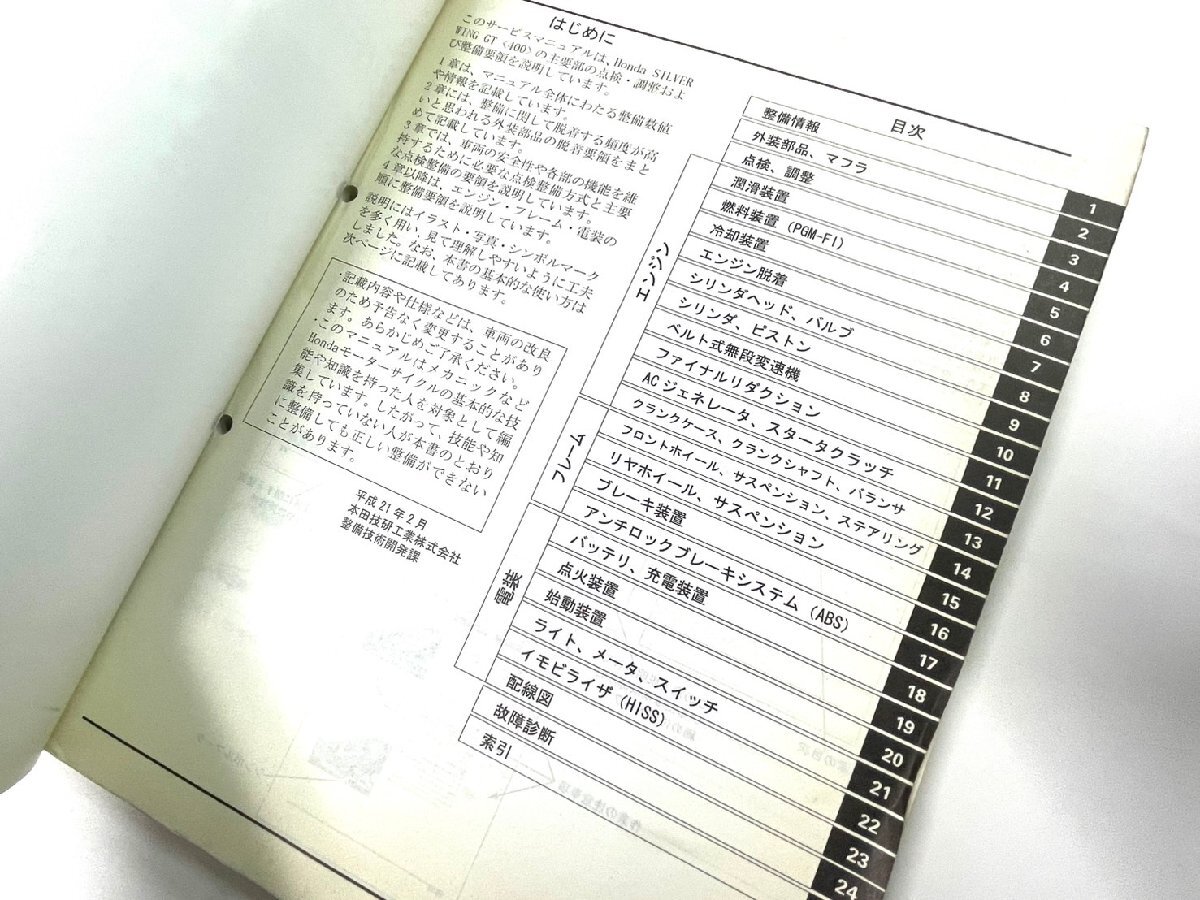 はじめに
このサービスマニュアルは、Honda SILVER
WING GT〈400〉の主要部の点検・調整およ
び整備要領を説明しています。
1章は、マニュアル全体にわたる整備数値
や情報を記載しています。
2章には、整備に関して脱着する頻度が高
いと思われる外装部品の脱着要領をまと
めて記載しています。
3章では、車両の安全性や各部の機能を維
持するために必要な点検整備方式と主要
な点検整備の要領を説明しています。
4章以降は、エンジン・フレーム・電装の
順に整備要領を説明しています。
説明にはイラスト・写真・シンボルマーク
を多く用い、見て理解しやすいように工夫
しました。なお、本書の基本的な使い方は
次ページに記載してあります。
・記載内容や仕様などは、車両の改良
のため予告なく変更することがあり
ます。あらかじめご了承ください。
・このマニュアルはメカニックなど
Hondaモーターサイクルの基本的な技
能や知識を持った人を対象として編
集しています。したがって、技能や知
識を持っていない人が本書のとおり
に整備しても正しい整備ができない
ことがあります。
平成21年2月
本田技研工業株式会社
整備技術開発課
目次
整備情報 1
外装部品、マフラ 2
点検、調整 3
エンジン
潤滑装置 4
燃料装置(PGM-FI) 5
冷却装置 6
エンジン脱着 7
シリンダヘッド、バルブ 8
シリンダ、ピストン 9
ベルト式無段変速機 10
ファイナルリダクション 11
ACジェネレータ、スタータクラッチ 12
クランクケース、クランクシャフト、バランサ 13
フレーム
フロントホイール、サスペンション、ステアリング 14
リヤホイール、サスペンション 15
ブレーキ装置 16
アンチロックブレーキシステム(ABS) 17
電装
バッテリ、充電装置 18
点火装置 19
始動装置 20
ライト、メータ、スイッチ 21
イモビライザ(HISS) 22
配線図 23
故障診断 24
索引